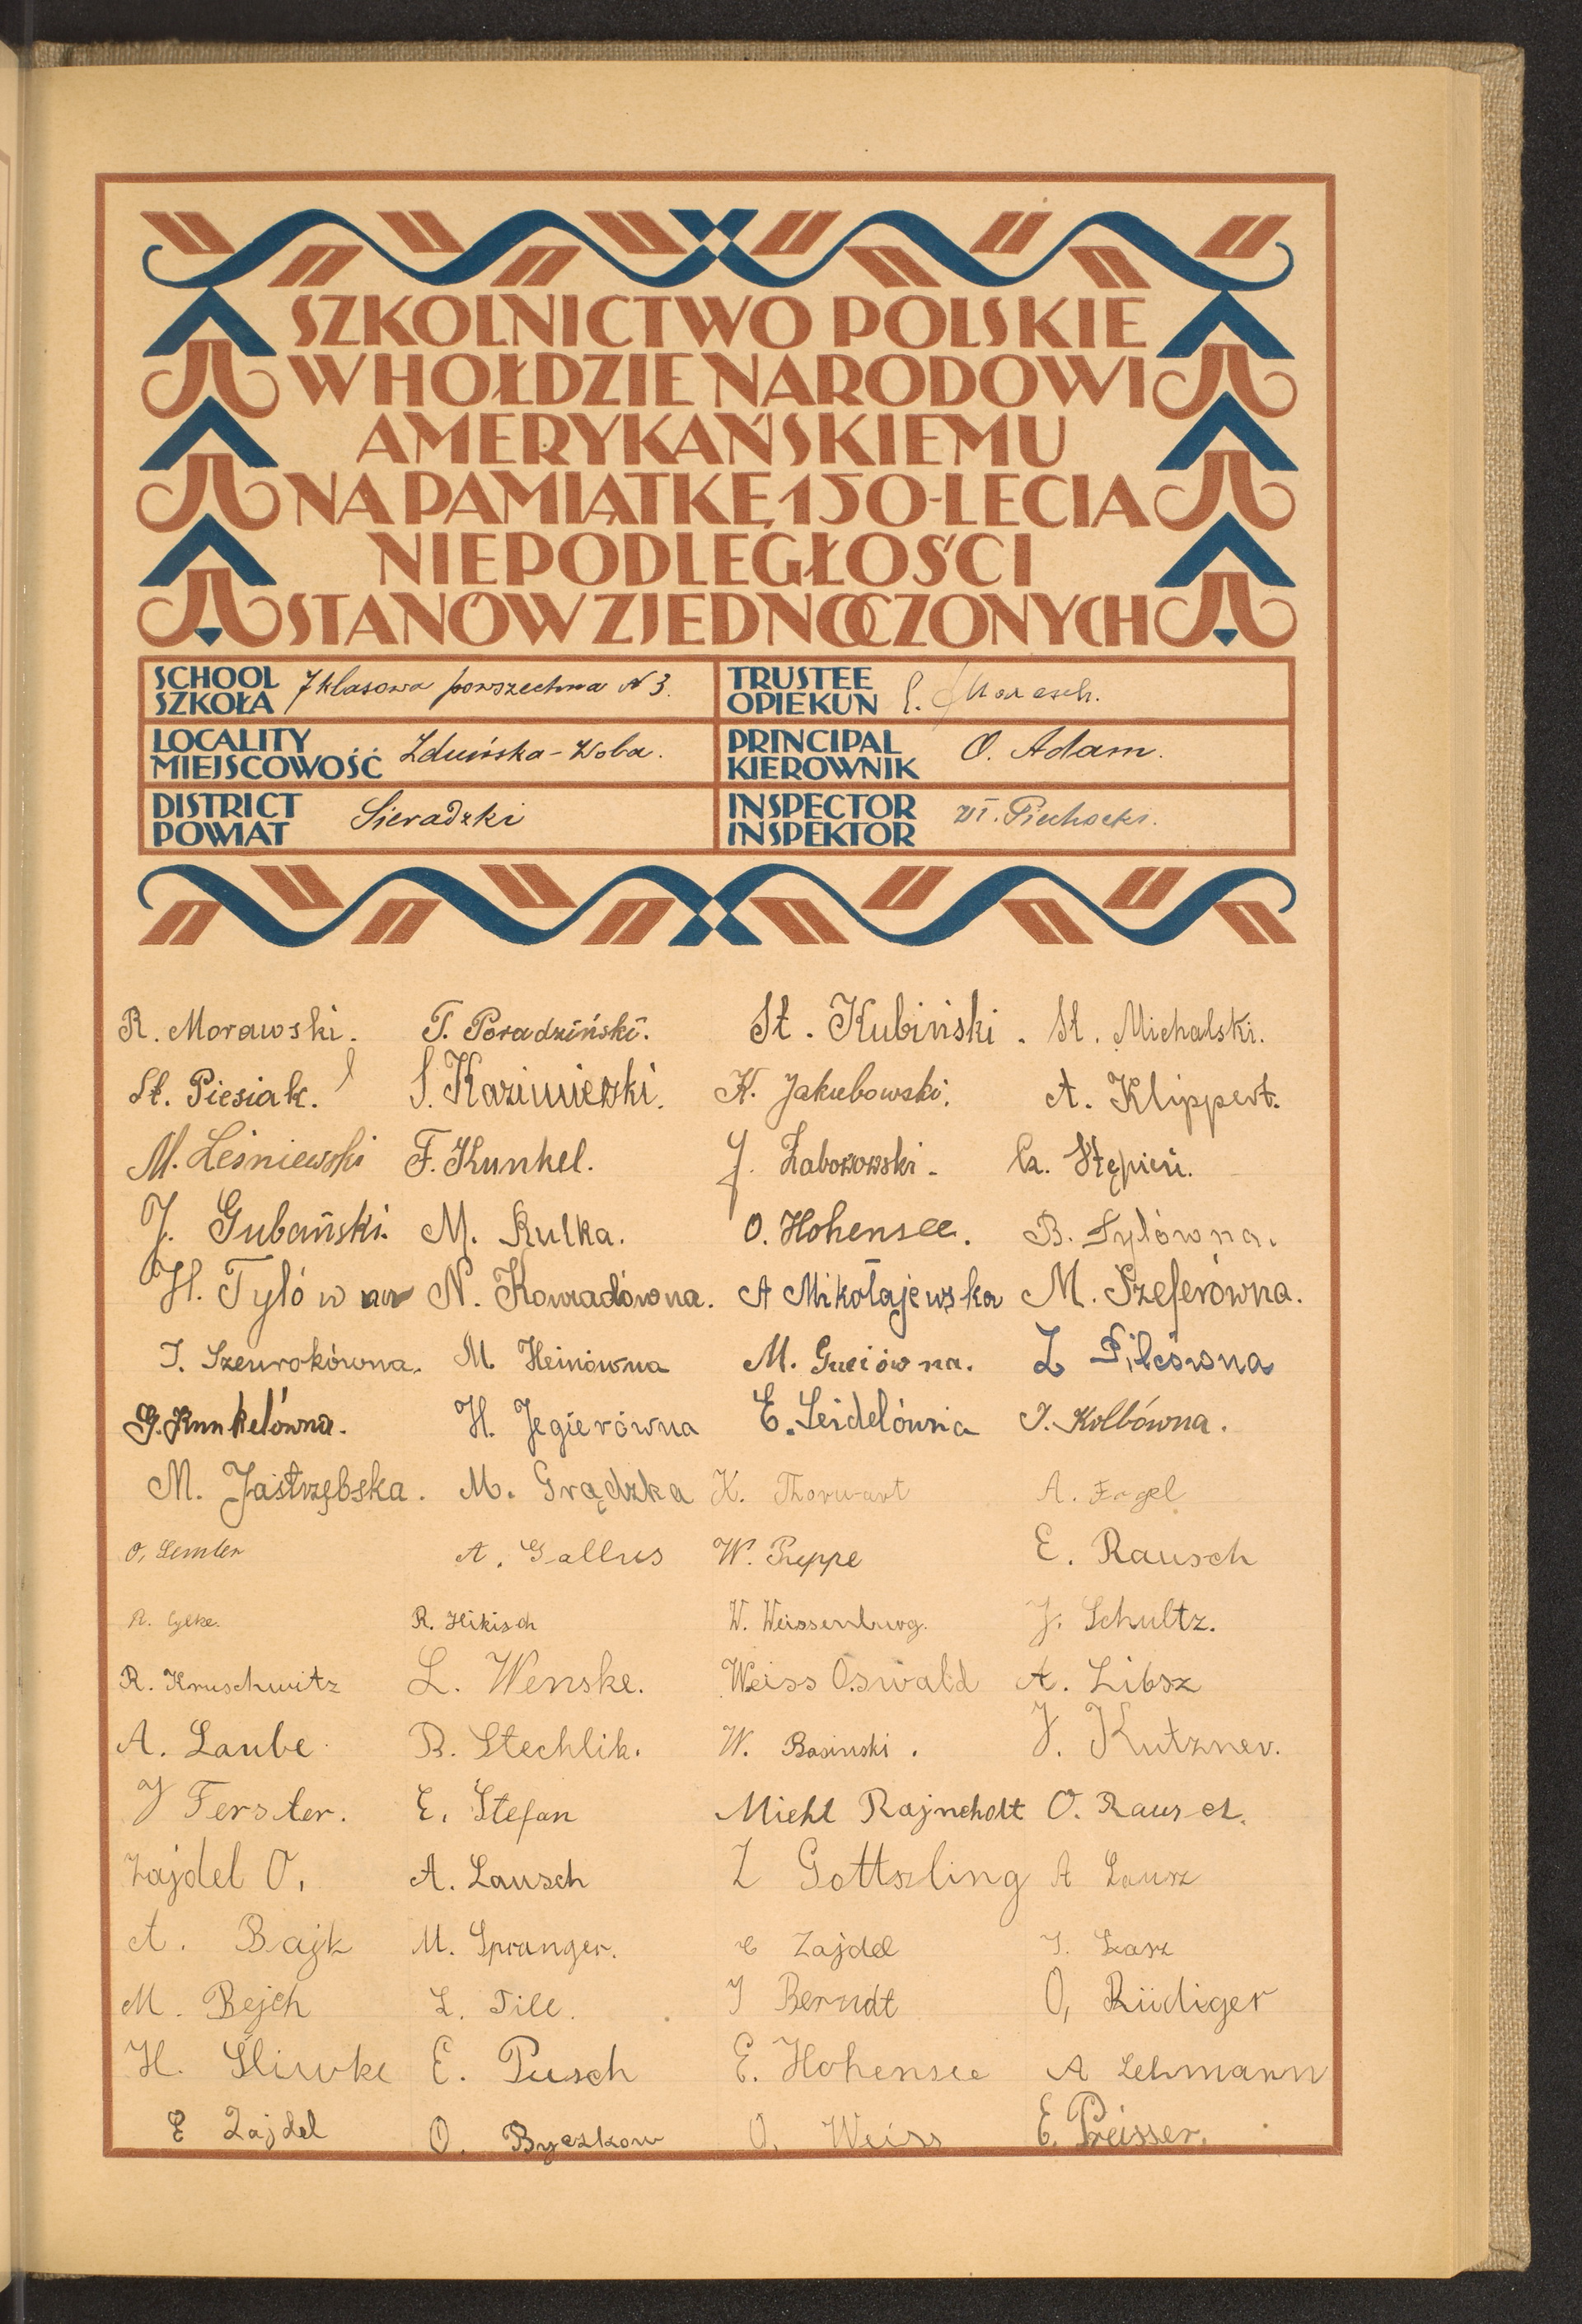 SZKOLNICTWO POLSKIE
W HOŁDZIE NARODOWI
AMERYKAŃSKIEMU
NA PAMIĄTKĘ 150-LECIA
NIEPODLEGŁOŚCI
STANÓW ZJEDNOCZONYCH
SCHOOL SZKOŁA 7 klasowa powszechna N 3.
TRUSTEE OPIEKUN
LOCALITY MIEJSCOWOŚĆ Zduńska-Wola.
PRINCIPAL KIEROWNIK O. Adam.
DISTRICT POWIAT Sieradzki
INSPECTOR INSPEKTOR Wł. Piechocki.
R. Morawski. T. Poradziński. St. Kubiński. St. Michalski.
St. Piesiak. S. Kazimierski. K. Jakubowski. A. Klippert.
M. Leśniewski F. Kunkel. J. Zaborowski. Cz. Stępień.
J. Gubański. M. Kulka. O. Hohensee. B. Tylówna.
H. Tylówna N. Konradówna. A Mikołajewska M. Szeferówna.
M Heinówna M. Guciówna. Z Pilcówna
G. Kunkelówna. H. Jegierówna E. Seidelówna I. Kolbówna.
M. Jastrzębska. M. Grądzka K. Thorwart A. Engel
O, Semler A. Gallus W. Preppe E. Rausch
R. Hikisch W. Weissenburg. J. Schultz.
R. Kruschwitz L. Wenske. Weiss Oswald A. Libsz
A. Laube B. Stechlik. W. Basinski. J. Kutzner.
J Ferster. E. Stefan Miehl Rajncholt O. Rausch.
Zajdel O, A. Lausch Z Gottszling A Lausz
A. Bajk M. Spranger. E Zajdel
M. Bejch L. Till. J Berndt O, Rüdiger
H. Śliwke E. Pusch E. Hohensee A Lehmann
E Zajdel O. Byczkow O. Weiss E. Preisser.